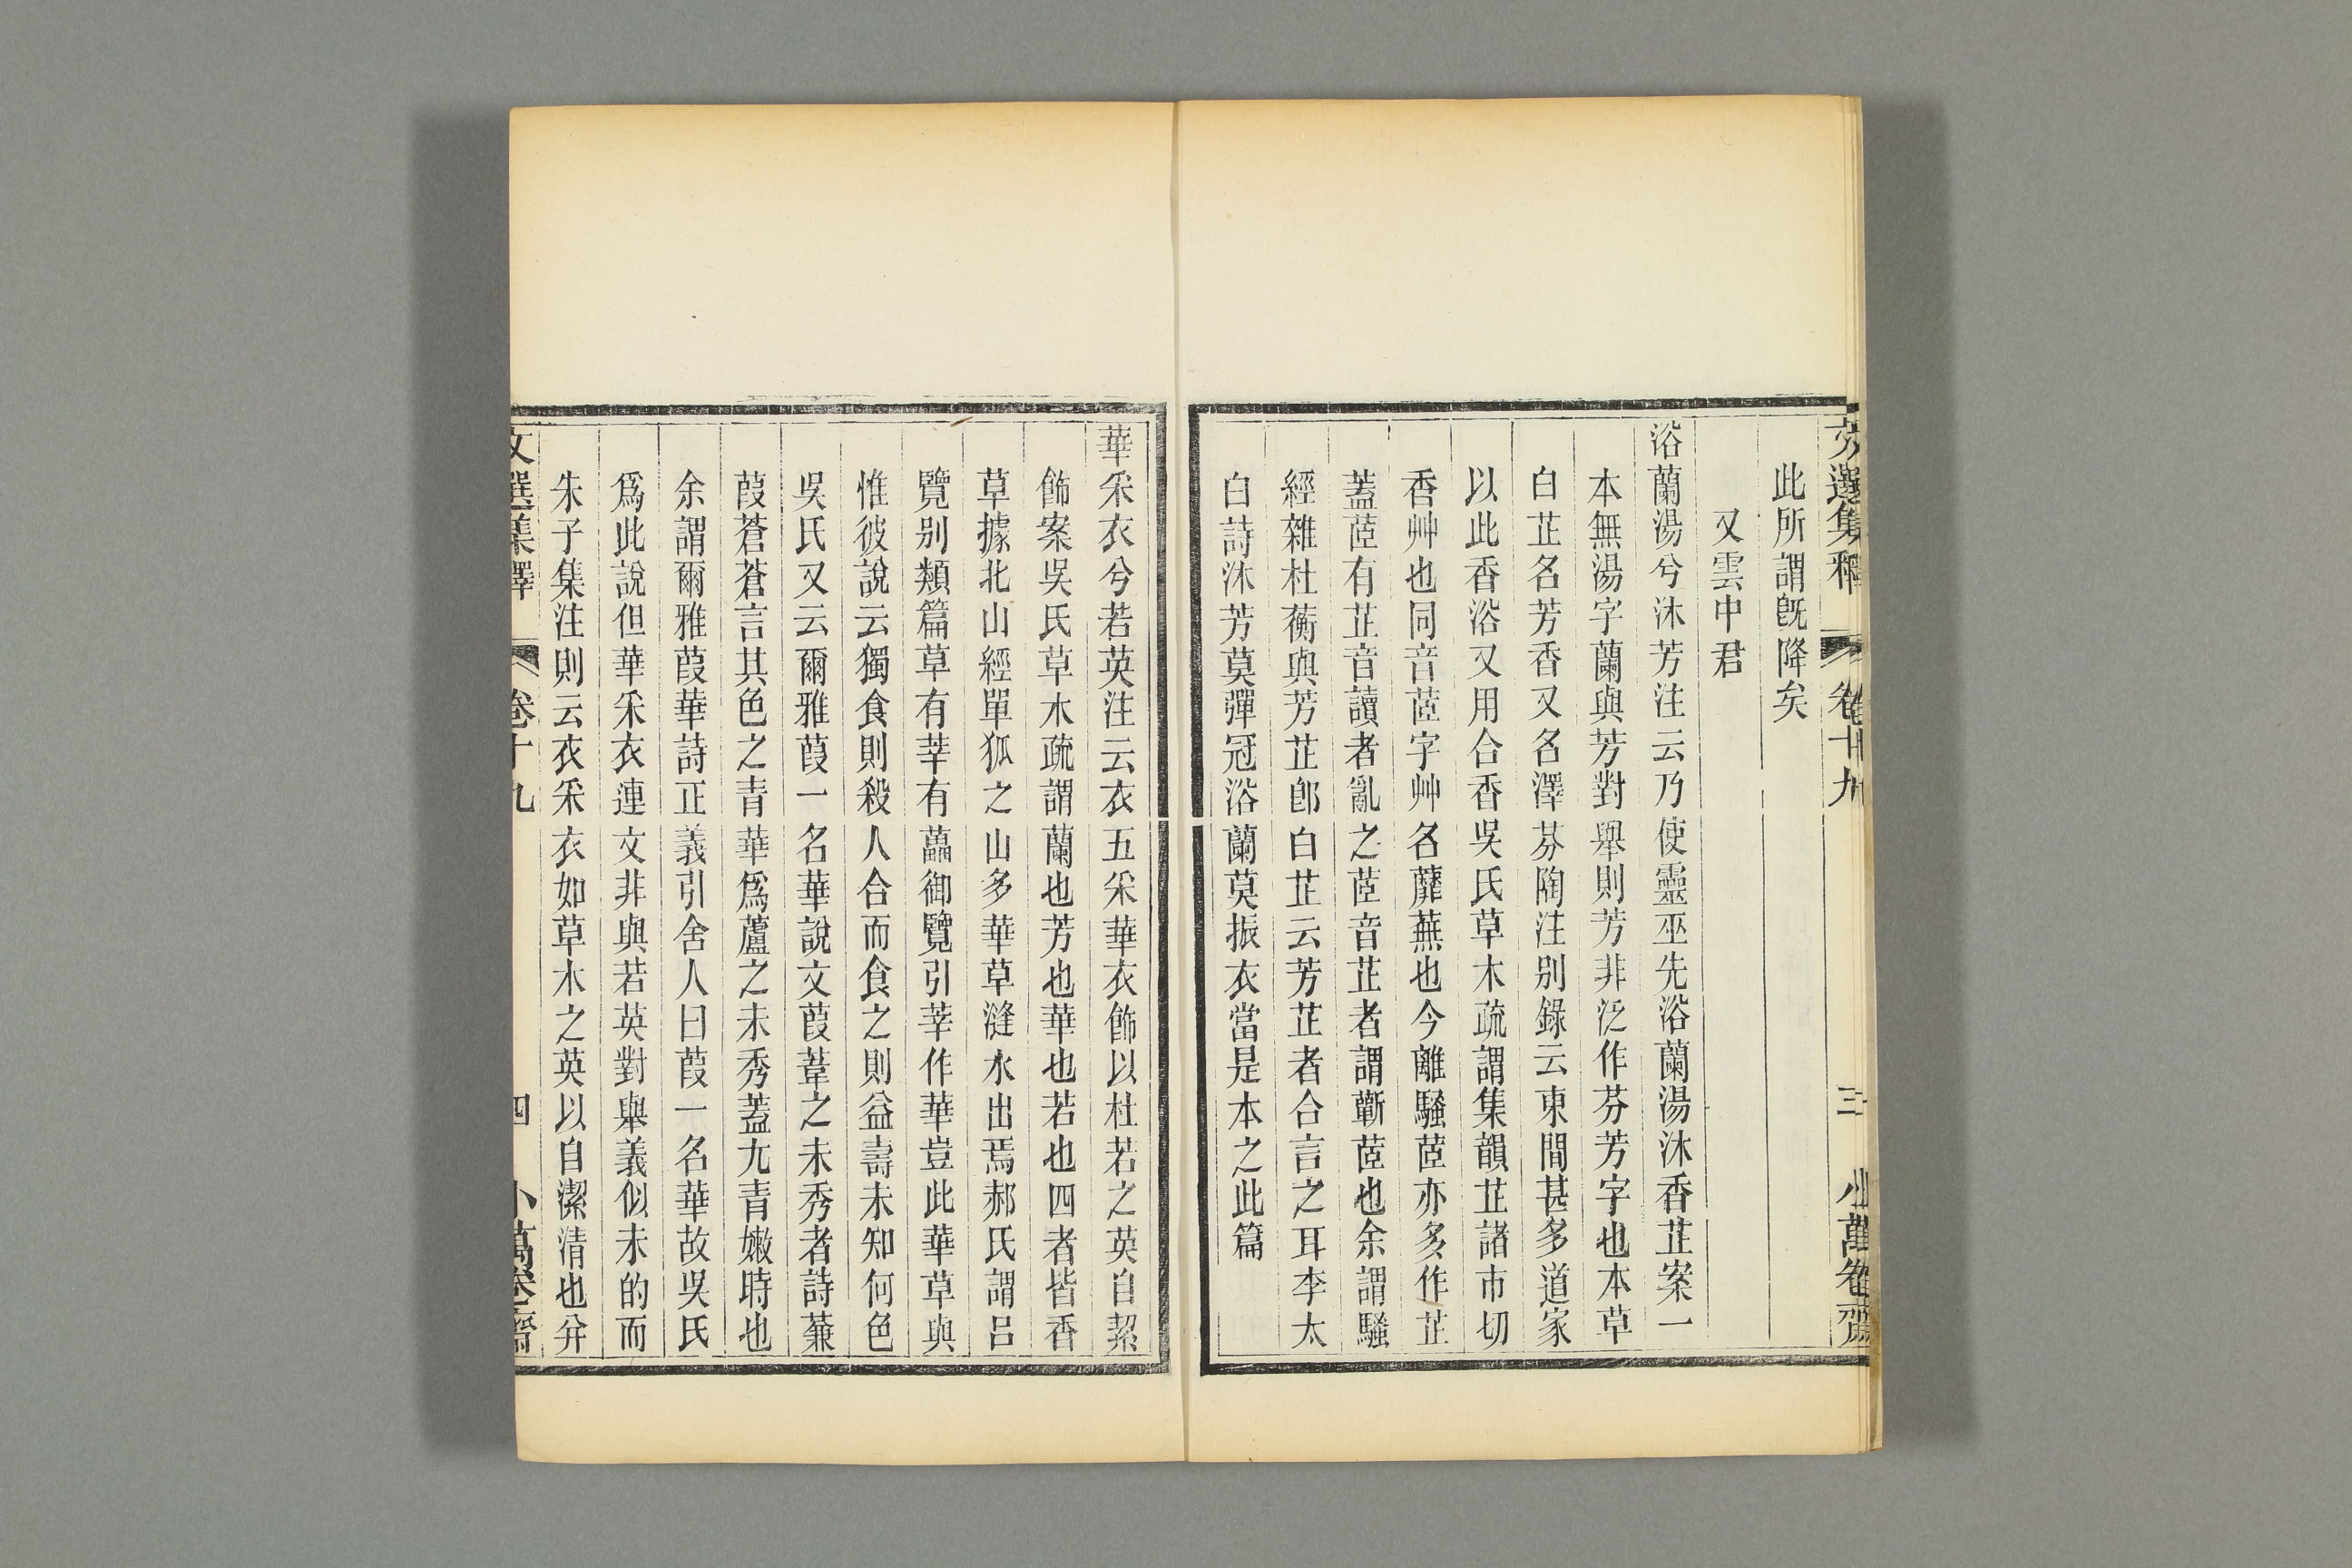 文選集釋 卷十九 三 小萬卷齋
此所謂旣降矣
又雲中君
浴蘭湯兮沐芳注云乃使靈巫先浴蘭湯沐香芷案一
本無湯字蘭與芳對舉則芳非泛作芬芳字也本草
白芷名芳香又名澤芬陶注别錄云東間甚多道家
以此香浴又用合香吳氏草木疏謂集韻芷諸市切
香艸也同音茝字艸名蘼蕪也今離騷茝亦多作芷
蓋茝有芷音讀者亂之茝音芷者謂蘄茝也余謂騷
經雜杜蘅與芳芷卽白芷云芳芷者合言之耳李太
白詩沐芳莫彈冠浴蘭莫振衣當是本之此篇
華采衣兮若英注云衣五采華衣飾以杜若之英自絜
飾案吳氏草木疏謂蘭也芳也華也若也四者皆香
草據北山經單狐之山多華草漨水出焉郝氏謂呂
覽别類篇草有莘有藟御覽引莘作華豈此華草與
惟彼說云獨食則殺人合而食之則益壽未知何色
吳氏又云爾雅葭一名華說文葭葦之未秀者詩蒹
葭蒼蒼言其色之青華爲蘆之未秀蓋尢青嫩時也
余謂爾雅葭華詩正義引舍人曰葭一名華故吳氏
爲此說但華采衣連文非與若英對舉義似未的而
朱子集注則云衣采衣如草木之英以自潔清也分
文選集釋 卷十九 四 小萬卷齋